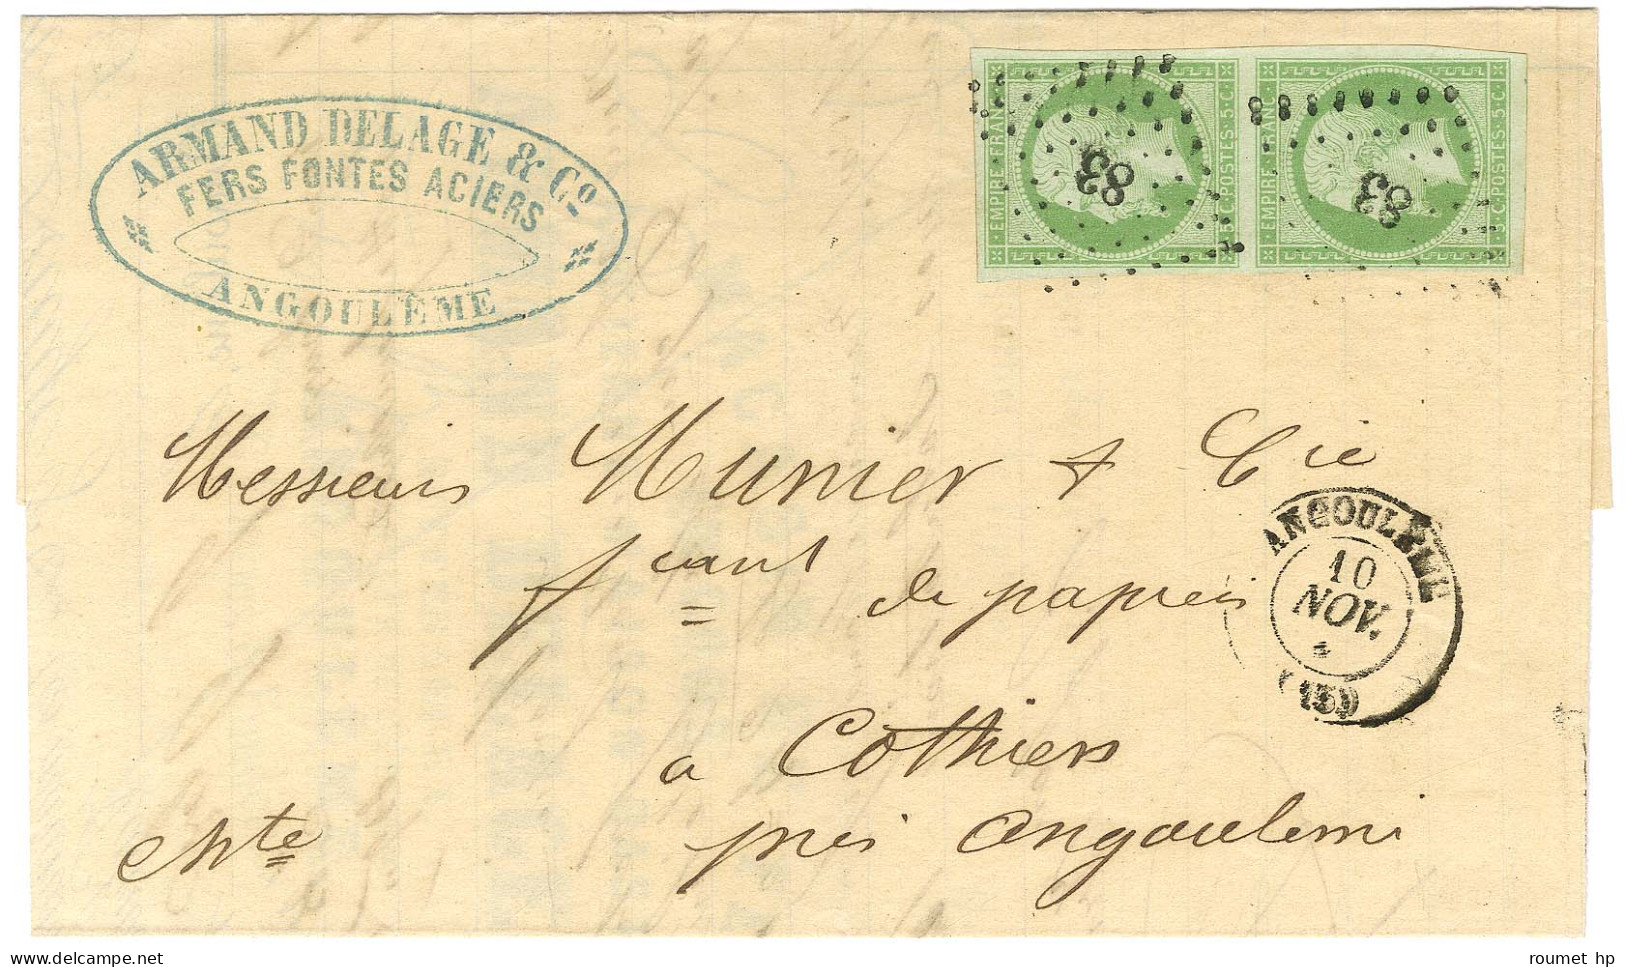 ARMAND DELAGE & Cº
FERS FONTES ACIERS
ANGOULÊME
EMPIRE·FRANC· 5·C·POSTES·5·C·
EMPIRE·FRANC· 5·C·POSTES·5·C·
83
83
Messieurs Munier & Cie
fcant de papiers
ANGOULEME
10
NOV.
(15)
à Cothiers
près Angoulême
Chte
roumet_hp delcampe.net